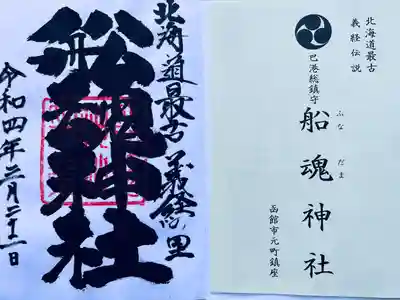 北海道最古 義経の里
船魂神社
令和四年二月二十二日
北海道最古
義経伝説
巴港総鎮守
船魂神社
ふなだま
函館市元町鎮座